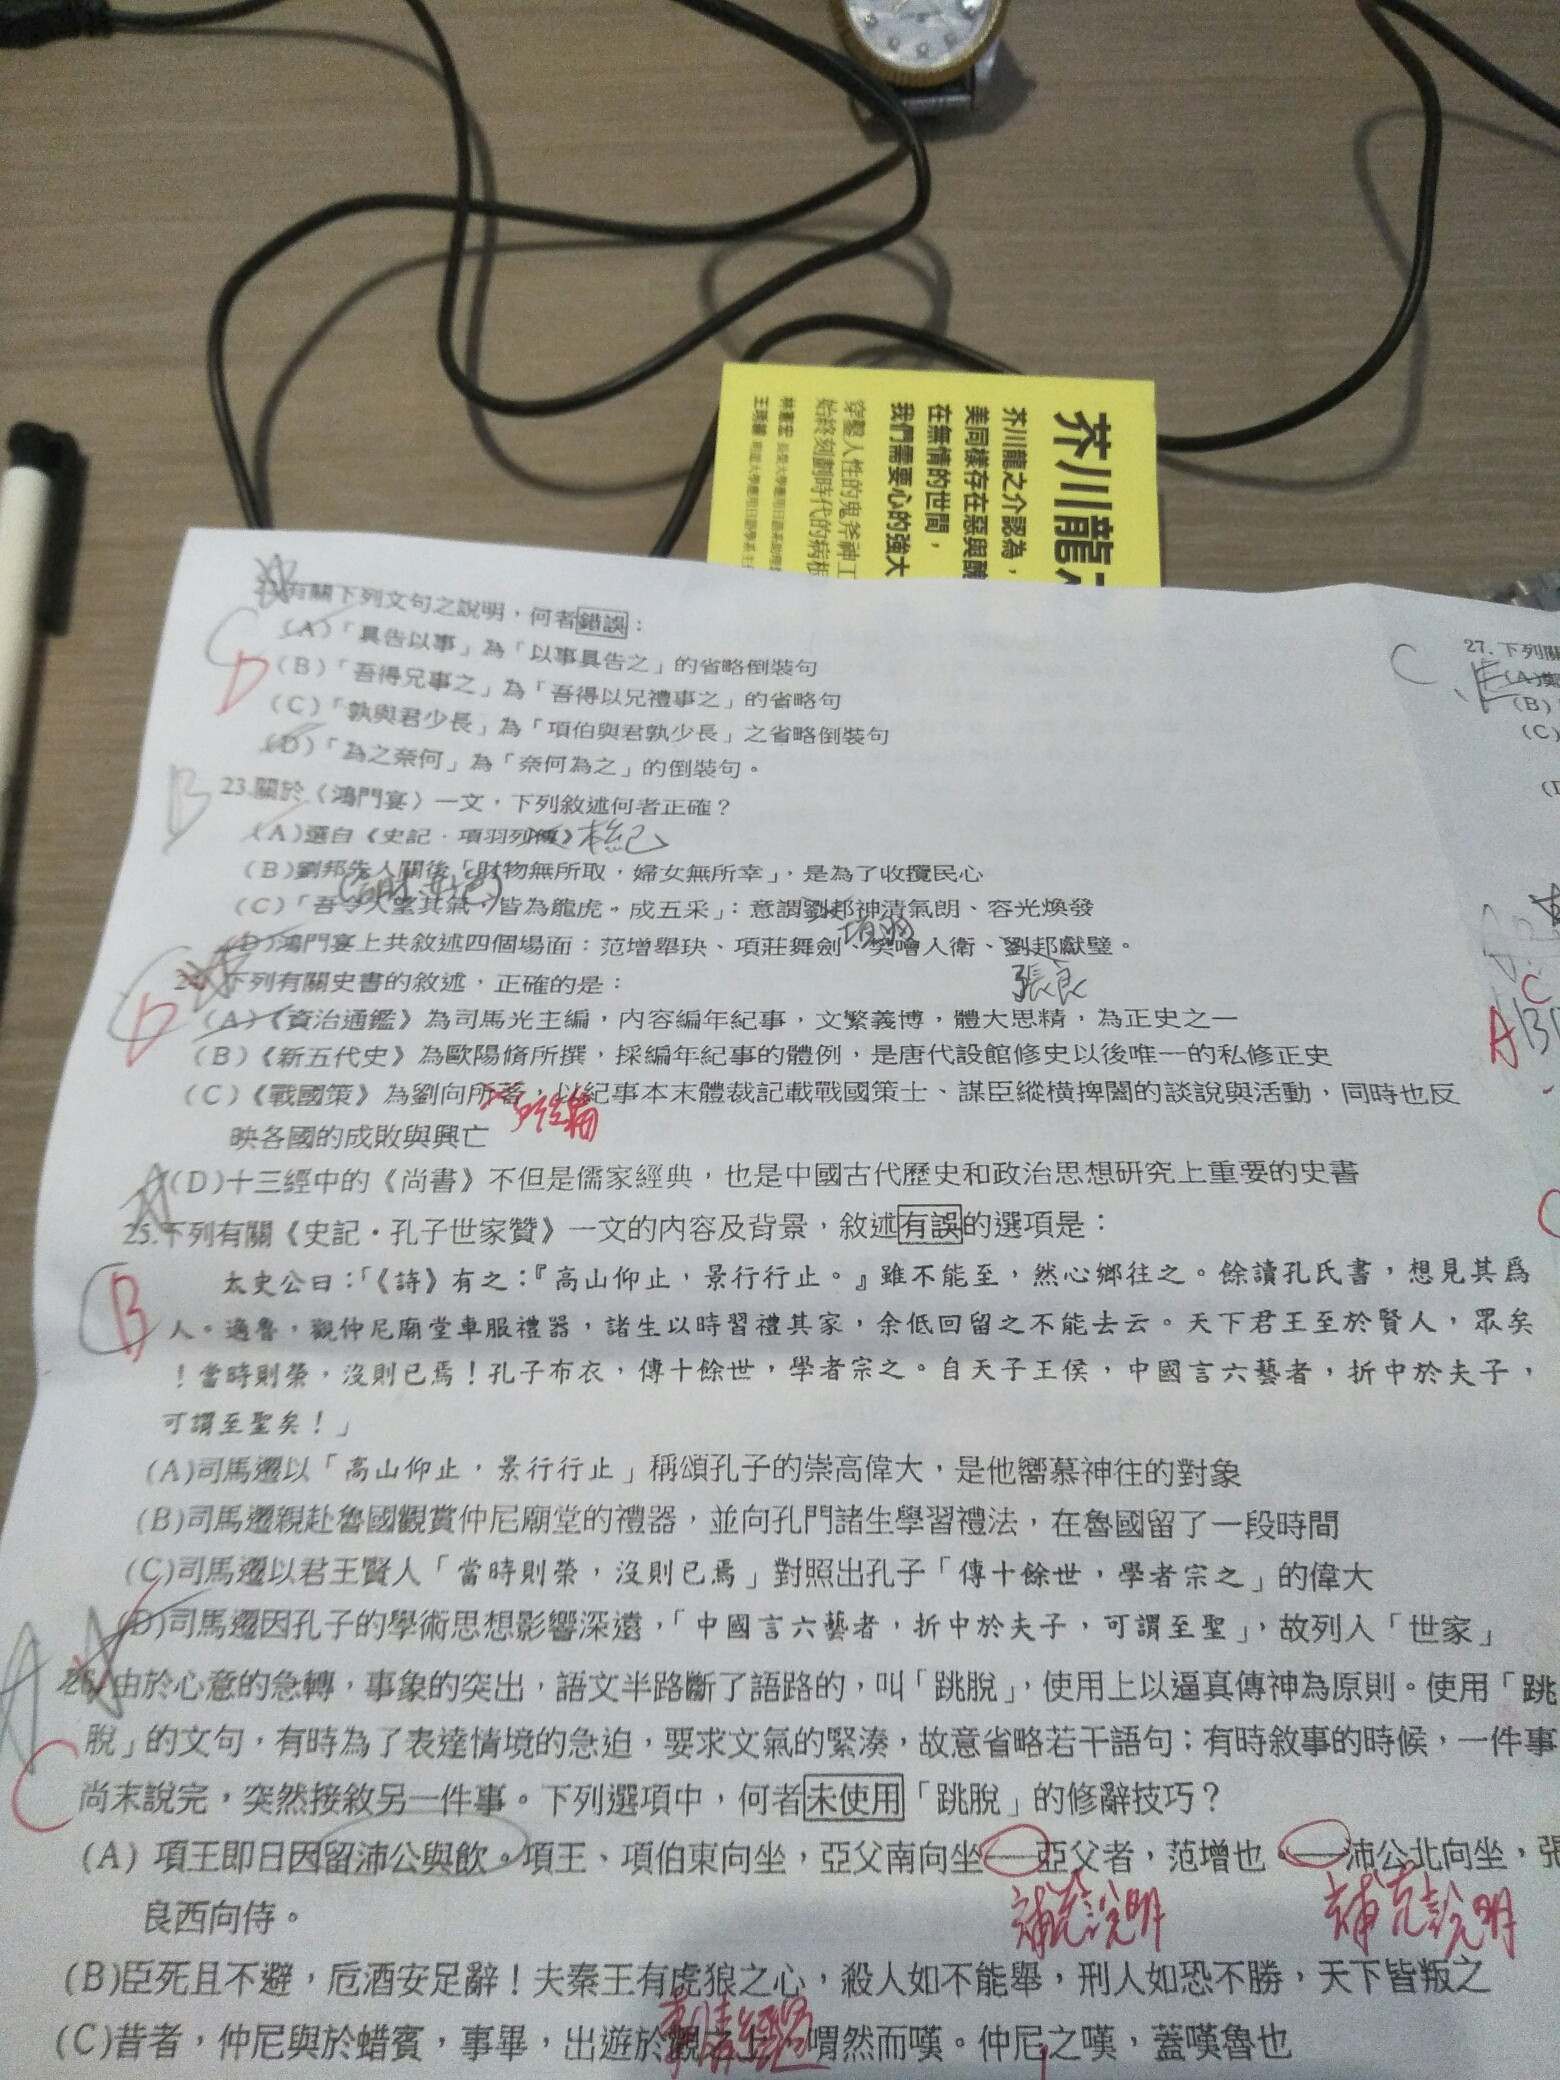 芥川龍
芥川龍之介認為，
美同樣存在惡與醜
在無情的世間，
我們需要心的強大
穿鑿人性的鬼斧神工
始終刻劃時代的病根
有關下列文句之說明，何者錯誤：
(A)「具告以事」為「以事具告之」的省略倒裝句
(B)「吾得兄事之」為「吾得以兄禮事之」的省略句
(C)「孰與君少長」為「項伯與君孰少長」之省略倒裝句
(D)「為之奈何」為「奈何為之」的倒裝句。
C
D
23.關於〈鴻門宴〉一文，下列敘述何者正確？
B
(A)選自《史記．項羽列傳》本紀
(B)劉邦先入關後「財物無所取，婦女無所幸」，是為了收攬民心
(C)「吾令人望其氣，皆為龍虎。成五采」：意謂劉邦神清氣朗、容光煥發
項羽
(D)鴻門宴上共敘述四個場面：范增舉玦、項莊舞劍、樊噲入衛、劉邦獻璧。
張良
24.下列有關史書的敘述，正確的是：
D
(A)《資治通鑑》為司馬光主編，內容編年紀事，文繁義博，體大思精，為正史之一
(B)《新五代史》為歐陽脩所撰，採編年紀事的體例，是唐代設館修史以後唯一的私修正史
(C)《戰國策》為劉向所著，以紀事本末體裁記載戰國策士、謀臣縱橫捭闔的談說與活動，同時也反
所編
映各國的成敗與興亡
(D)十三經中的《尚書》不但是儒家經典，也是中國古代歷史和政治思想研究上重要的史書
25.下列有關《史記・孔子世家贊》一文的內容及背景，敘述有誤的選項是：
B
太史公曰：「《詩》有之：『高山仰止，景行行止。』雖不能至，然心鄉往之。餘讀孔氏書，想見其爲
人。適魯，觀仲尼廟堂車服禮器，諸生以時習禮其家，余低回留之不能去云。天下君王至於賢人，眾矣
！當時則榮，沒則已焉！孔子布衣，傳十餘世，學者宗之。自天子王侯，中國言六藝者，折中於夫子，
可謂至聖矣！」
(A)司馬遷以「高山仰止，景行行止」稱頌孔子的崇高偉大，是他嚮慕神往的對象
(B)司馬遷親赴魯國觀賞仲尼廟堂的禮器，並向孔門諸生學習禮法，在魯國留了一段時間
(C)司馬遷以君王賢人「當時則榮，沒則已焉」對照出孔子「傳十餘世，學者宗之」的偉大
(D)司馬遷因孔子的學術思想影響深遠，「中國言六藝者，折中於夫子，可謂至聖」，故列入「世家」
26.由於心意的急轉，事象的突出，語文半路斷了語路的，叫「跳脫」，使用上以逼真傳神為原則。使用「跳
脫」的文句，有時為了表達情境的急迫，要求文氣的緊湊，故意省略若干語句；有時敘事的時候，一件事
尚未說完，突然接敘另一件事。下列選項中，何者未使用「跳脫」的修辭技巧？
A
C
(A) 項王即日因留沛公與飲。項王、項伯東向坐，亞父南向坐──亞父者，范增也。──沛公北向坐，張
補充說明
補充說明
良西向侍。
(B)臣死且不避，卮酒安足辭！夫秦王有虎狼之心，殺人如不能舉，刑人如恐不勝，天下皆叛之
(C)昔者，仲尼與於蜡賓，事畢，出遊於觀之上，喟然而嘆。仲尼之嘆，蓋嘆魯也
C
27.下列關
(B)
(C)